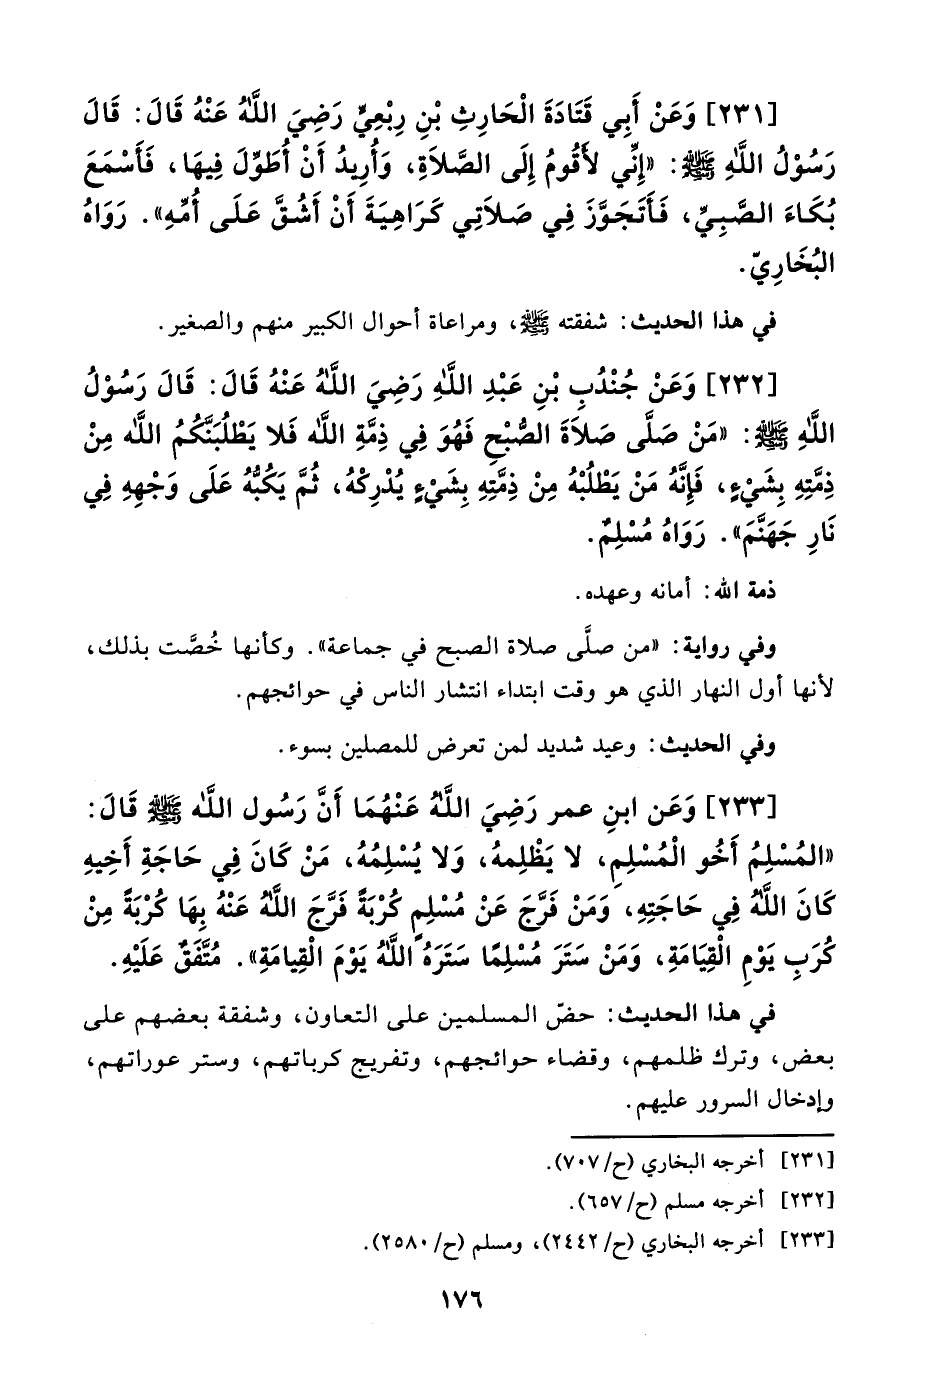 [٢٣١] وَعَنْ أَبِي قَتَادَةَ الْحَارِثِ بْنِ رِبْعِيٍّ رَضِيَ اللَّهُ عَنْهُ قَالَ: قَالَ
رَسُوْلُ اللَّهِ ﷺ: «إِنِّي لأَقُومُ إِلَى الصَّلاَةِ، وَأُرِيدُ أَنْ أُطَوِّلَ فِيهَا، فَأَسْمَعَ
بُكَاءَ الصَّبِيِّ، فَأَتَجَوَّزَ فِي صَلاَتِي كَرَاهِيَةَ أَنْ أَشُقَّ عَلَى أُمِّهِ». رَوَاهُ
البُخَارِيّ.
في هذا الحديث: شفقته ﷺ، ومراعاة أحوال الكبير منهم والصغير.
[٢٣٢] وَعَنْ جُنْدُبِ بْنِ عَبْدِ اللَّهِ رَضِيَ اللَّهُ عَنْهُ قَالَ: قَالَ رَسُوْلُ
اللَّهِ ﷺ: «مَنْ صَلَّى صَلاَةَ الصُّبْحِ فَهُوَ فِي ذِمَّةِ اللَّه فَلا يَطْلُبَنَّكُمُ الله مِنْ
ذِمَّتِهِ بِشَيْءٍ، فَإِنَّهُ مَنْ يَطْلُبْهُ مِنْ ذِمَّتِهِ بِشَيْءٍ يُدْرِكْهُ، ثُمَّ يَكُبُّهُ عَلَى وَجْهِهِ فِي
نَارِ جَهَنَّمَ». رَوَاهُ مُسْلِمٌ.
ذمة الله: أمانه وعهده.
وفي رواية: «من صلَّى صلاة الصبح في جماعة». وكأنها خُصَّت بذلك،
لأنها أول النهار الذي هو وقت ابتداء انتشار الناس في حوائجهم.
وفي الحديث: وعيد شديد لمن تعرض للمصلين بسوء.
[٢٣٣] وَعَن ابنِ عمر رَضِيَ اللَّهُ عَنْهُمَا أَنَّ رَسُول اللَّه ﷺ قَالَ:
«المُسْلِمُ أَخُو الْمُسْلِمِ، لا يَظْلِمهُ، وَلا يُسْلِمُهُ، مَنْ كَانَ فِي حَاجَةِ أَخِيهِ
كَانَ اللَّهُ فِي حَاجَتِهِ، وَمَنْ فَرَّجَ عَنْ مُسْلِمٍ كُرْبَةً فَرَّجَ اللَّهُ عَنْهُ بِهَا كُرْبَةً مِنْ
كُرَبِ يَوْمِ الْقِيَامَةِ، وَمَنْ سَتَرَ مُسْلِمًا سَتَرَهُ اللَّهُ يَوْمَ الْقِيامَةِ». مُتَّفَقٌ عَلَيْهِ.
في هذا الحديث: حضّ المسلمين على التعاون، وشفقة بعضهم على
بعض، وترك ظلمهم، وقضاء حوائجهم، وتفريج كرباتهم، وستر عوراتهم،
وإدخال السرور عليهم.
[٢٣١] أخرجه البخاري (ح/٧٠٧).
[٢٣٢] أخرجه مسلم (ح/٦٥٧).
[٢٣٣] أخرجه البخاري (ح/٢٤٤٢)، ومسلم (ح/٢٥٨٠).
١٧٦